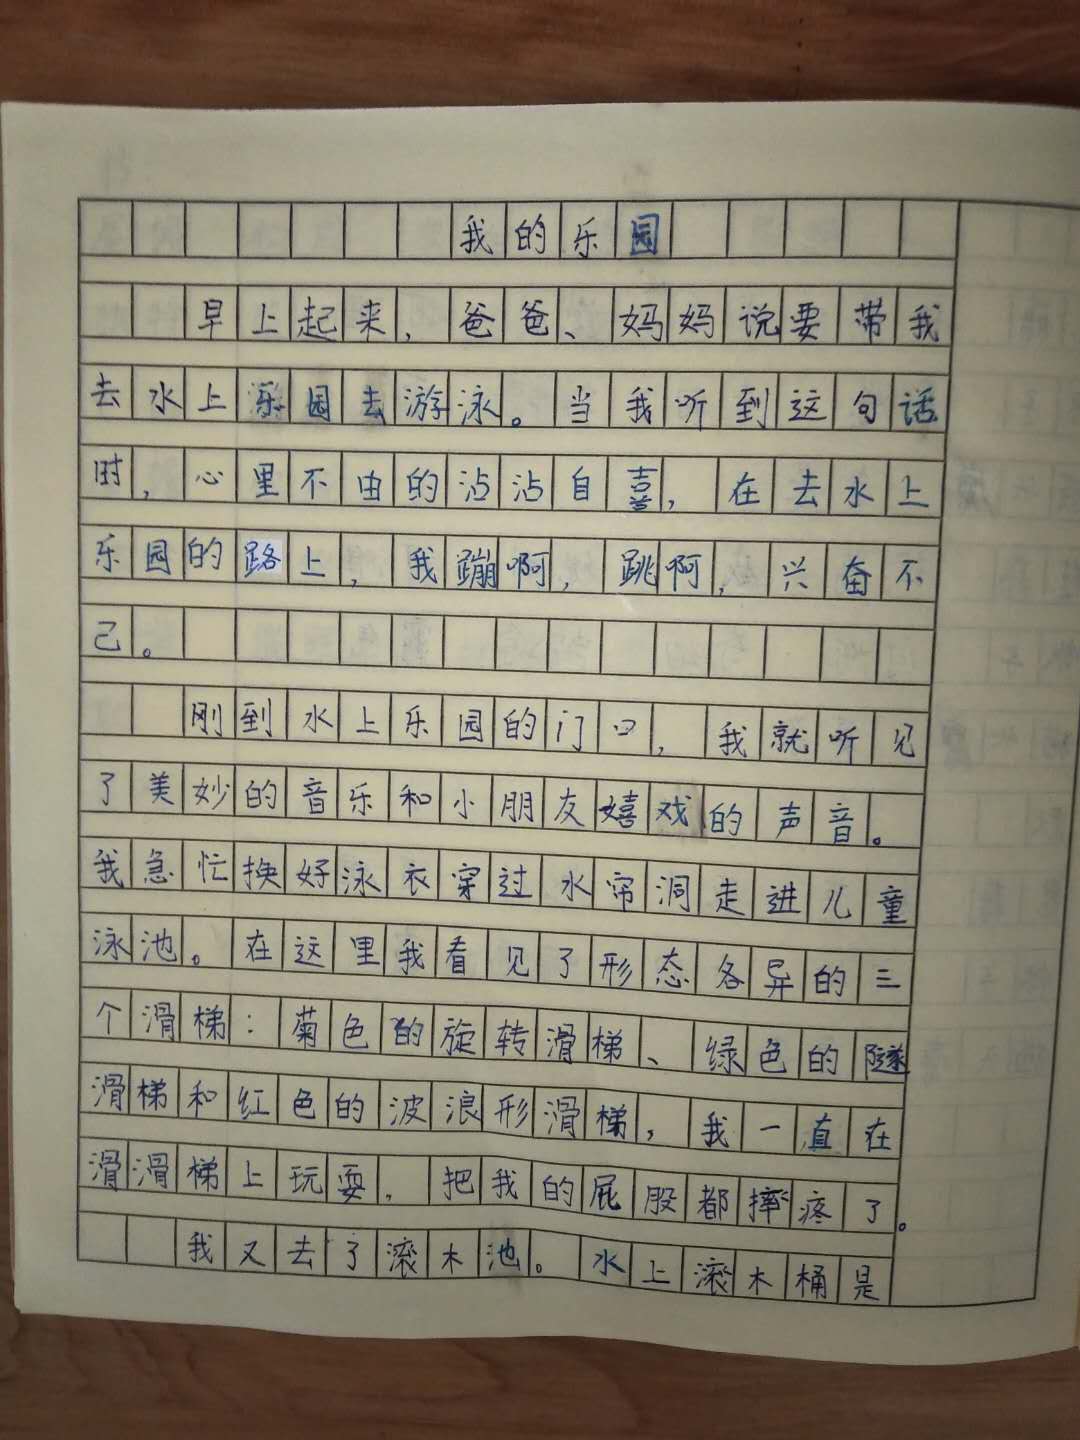 我的乐园
早上起来，爸爸、妈妈说要带我
去水上乐园去游泳。当我听到这句话
时，心里不由的沾沾自喜，在去水上
乐园的路上，我蹦啊，跳啊，兴奋不
己。
刚到水上乐园的门口，我就听见
了美妙的音乐和小朋友嬉戏的声音。
我急忙换好泳衣穿过水帘洞走进儿童
泳池。在这里我看见了形态各异的三
个滑梯：菊色的旋转滑梯、绿色的隧
滑梯和红色的波浪形滑梯，我一直在
滑滑梯上玩耍，把我的屁股都摔疼了。
我又去了滚木池。水上滚木桶是